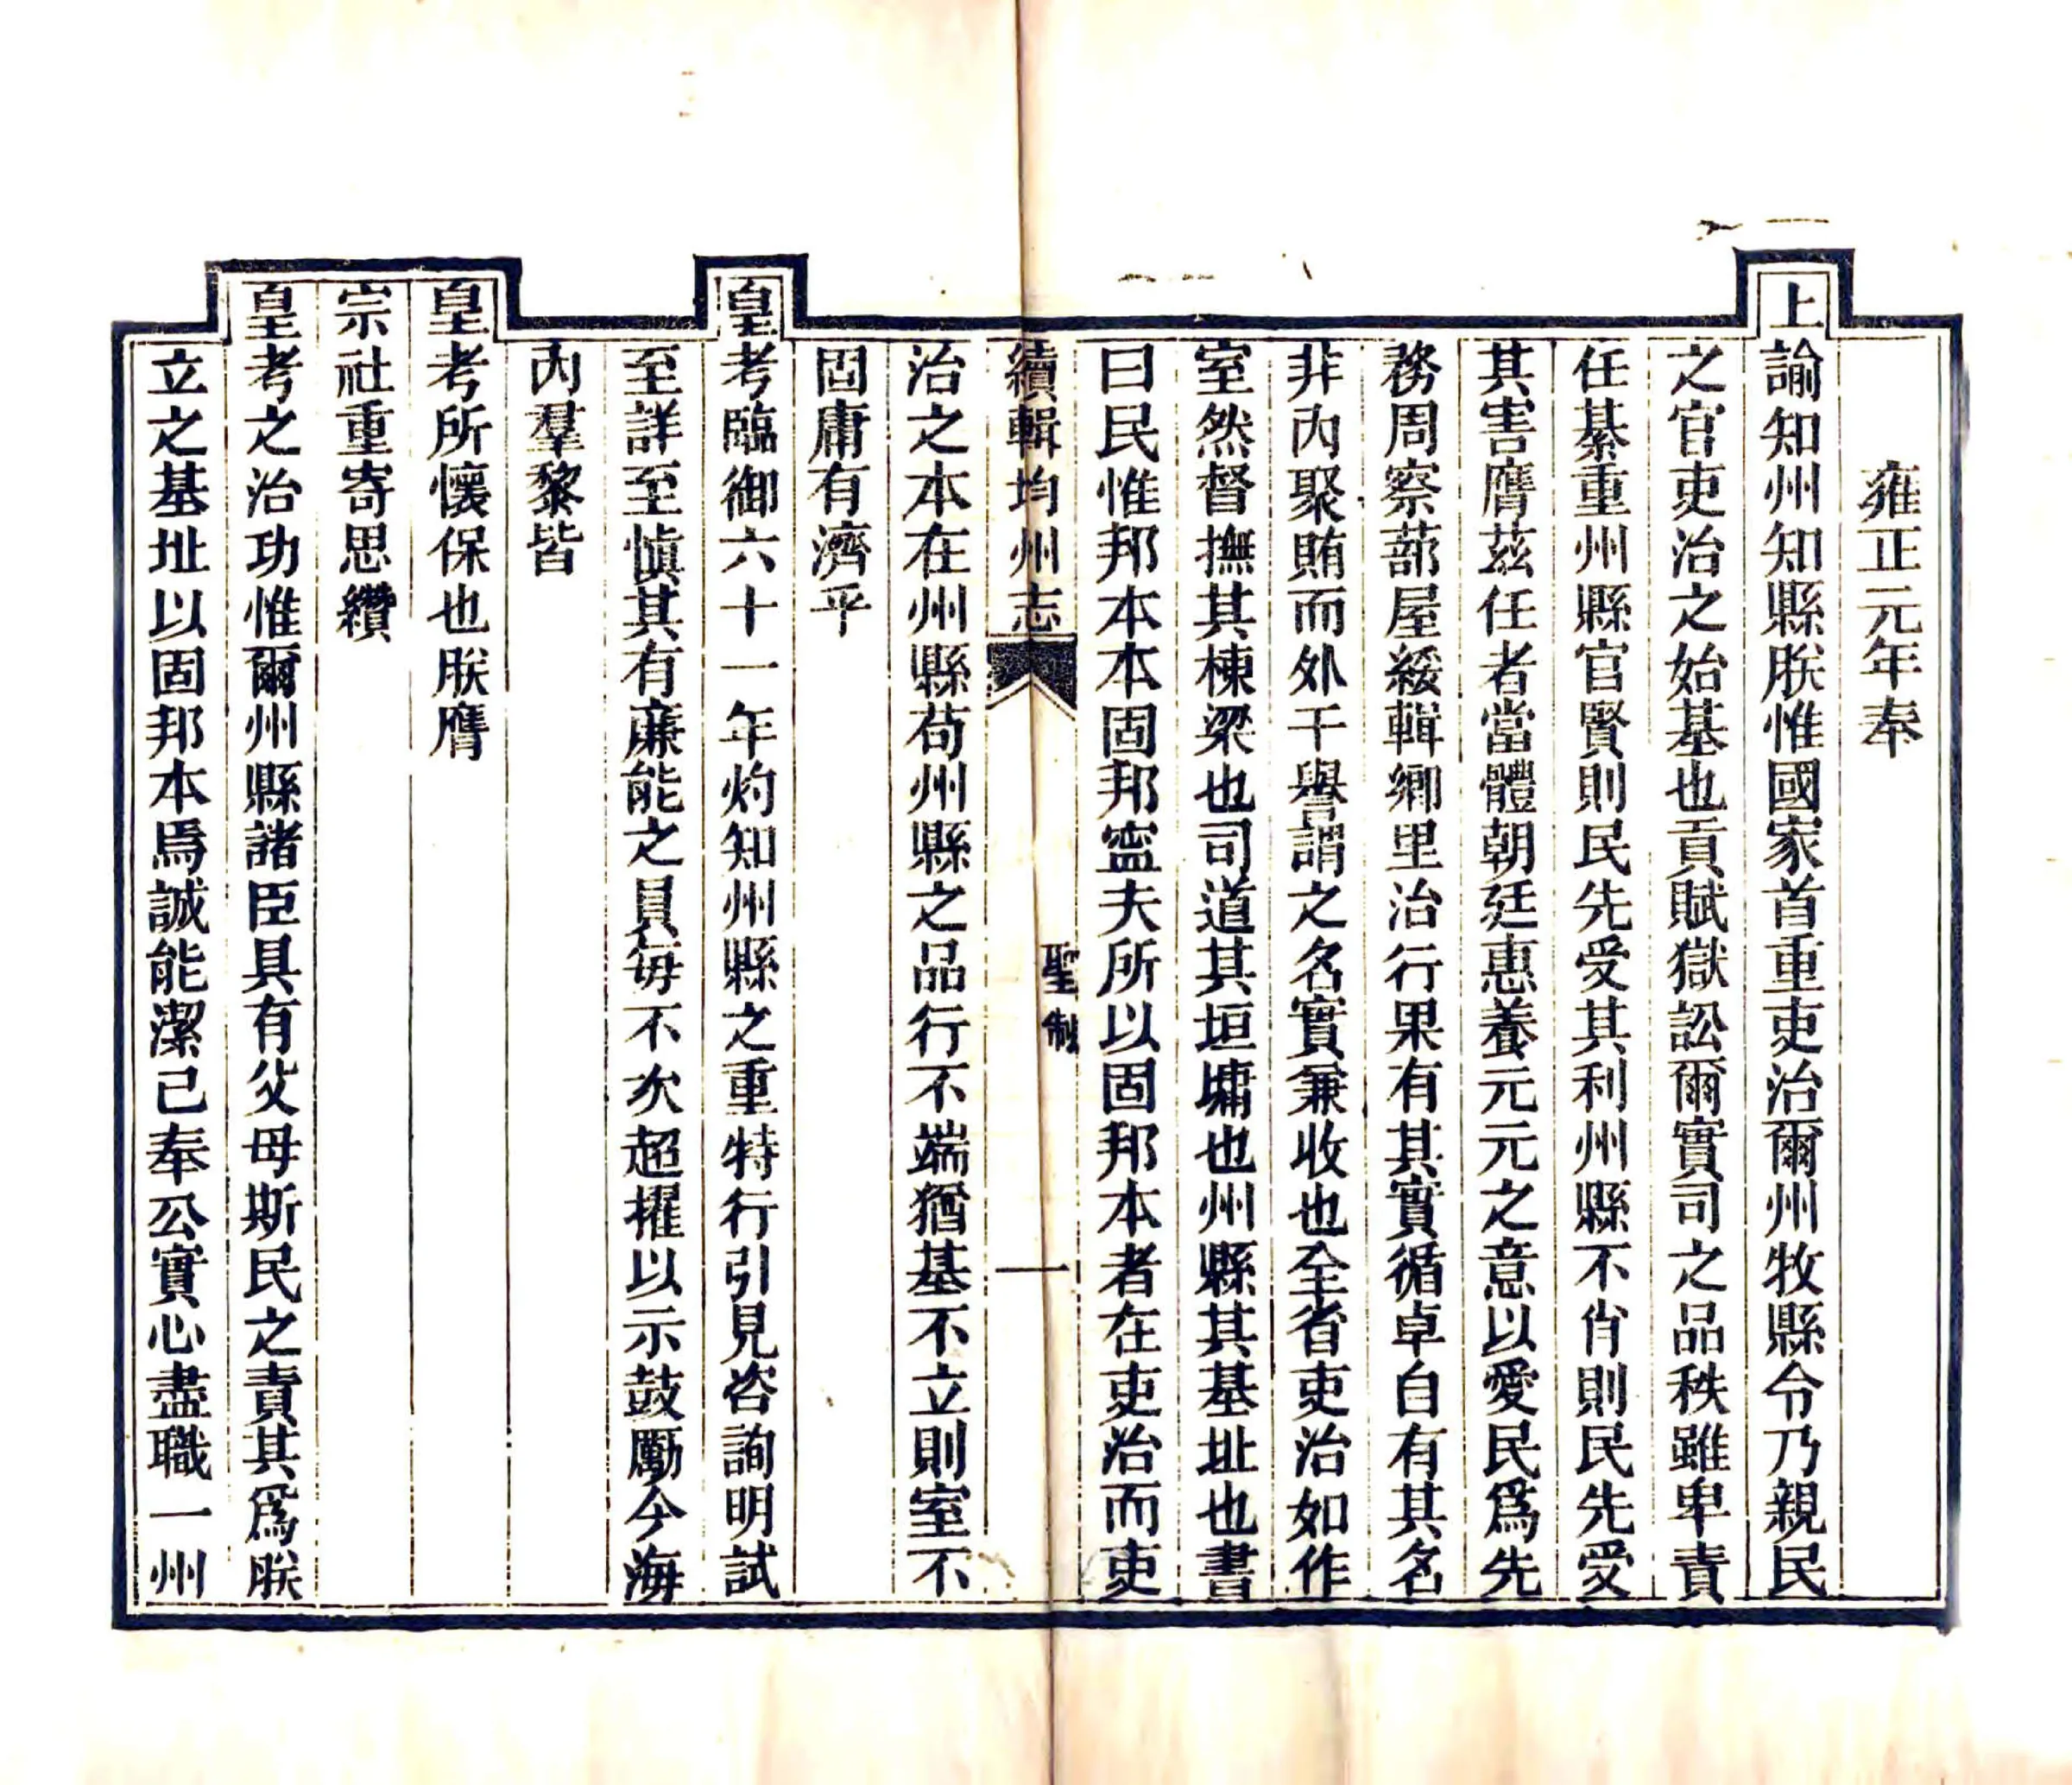 雍正元年奉
上諭知州知縣朕惟國家首重吏治爾州牧縣令乃親民
之官吏治之始基也貢賦獄訟爾實司之品秩雖卑責
任綦重州縣官賢則民先受其利州縣不肖則民先受
其害膺茲任者當體朝廷惠養元元之意以愛民爲先
務周察蔀屋綏輯鄉里治行果有其實循卓自有其名
非內聚賄而外干譽謂之名實兼收也全省吏治如作
室然督撫其棟梁也司道其垣墉也州縣其基址也書
曰民惟邦本本固邦寧夫所以固邦本者在吏治而吏
續輯均州志
聖制
一
治之本在州縣苟州縣之品行不端猶基不立則室不
固庸有濟乎
皇考臨御六十一年灼知州縣之重特行引見咨詢明試
至詳至愼其有廉能之員每不次超擢以示鼓勵今海
內羣黎皆
皇考所懷保也朕膺
宗社重寄思纘
皇考之治功惟爾州縣諸臣具有父母斯民之責其爲朕
立之基址以固邦本焉誠能潔己奉公實心盡職一州